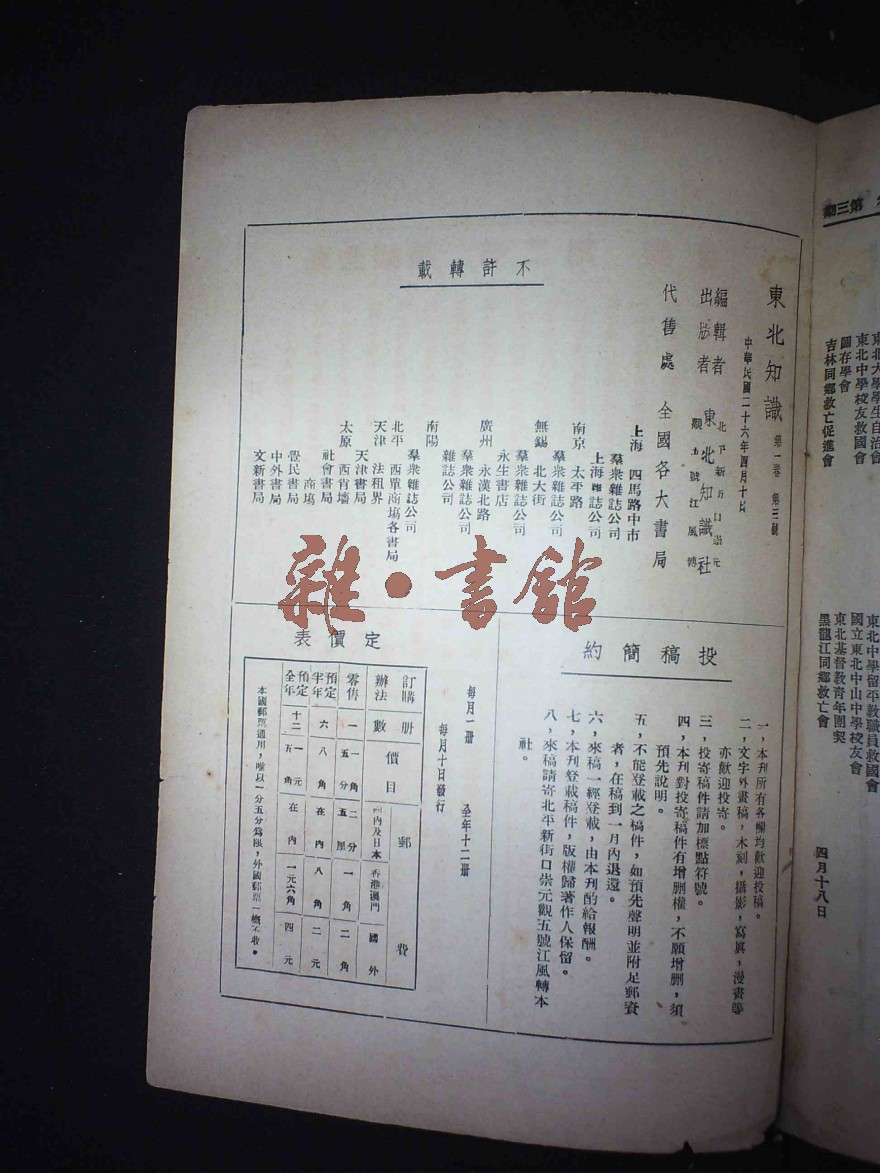 東北知識 第一卷 第三號
中華民國二十六年四月十日
編輯者
出版者
東北知識社
北平新街口崇元
觀五號江風轉
代售處 全國各大書局
上海 四馬路中市
羣衆雜誌公司
上海雜誌公司
南京 太平路
羣衆雜誌公司
無錫 北大街
羣衆雜誌公司
永生書店
廣州 永漢北路
羣衆雜誌公司
雜誌公司
南陽
羣衆雜誌公司
北平 西單商塲各書局
天津 法租界
天津書局
太原 西肖墻
社會書局
商塲
覺民書局
中外書局
文新書局
不許轉載
投稿簡約
一，本刊所有各欄均歡迎投稿。
二，文字外畫稿，木刻，攝影，寫眞，漫畫等
亦歡迎投寄。
三，投寄稿件請加標點符號。
四，本刊對投寄稿件有增删權，不願增删，須
預先說明。
五，不能登載之稿件，如預先聲明並附足郵資
者，在稿到一月內退還。
六，來稿一經登載，由本刊酌給報酬。
七，本刊登載稿件，版權歸著作人保留。
八，來稿請寄北平新街口崇元觀五號江風轉本
社。
每月一册 全年十二册
每月十日發行
定價表
訂購辦法 册數 價目 郵費
國內及日本 香港澳門 國外
零售 一 一角五分 二分五厘 一角 二角
預定半年 六 八角 在內 八角 二元
預定全年 十二 一元五角 在內 一元六角 四元
本國郵票通用，唯以一分五分爲限，外國郵票一概不收。
雜·書館
第三期
東北大學學生自治會
東北中學校友救國會
圖存學會
吉林同鄉救亡促進會
東北中學留平敎職員救國會
國立東北中山中學校友會
東北基督敎靑年團契
黑龍江同鄉救亡會
四月十八日